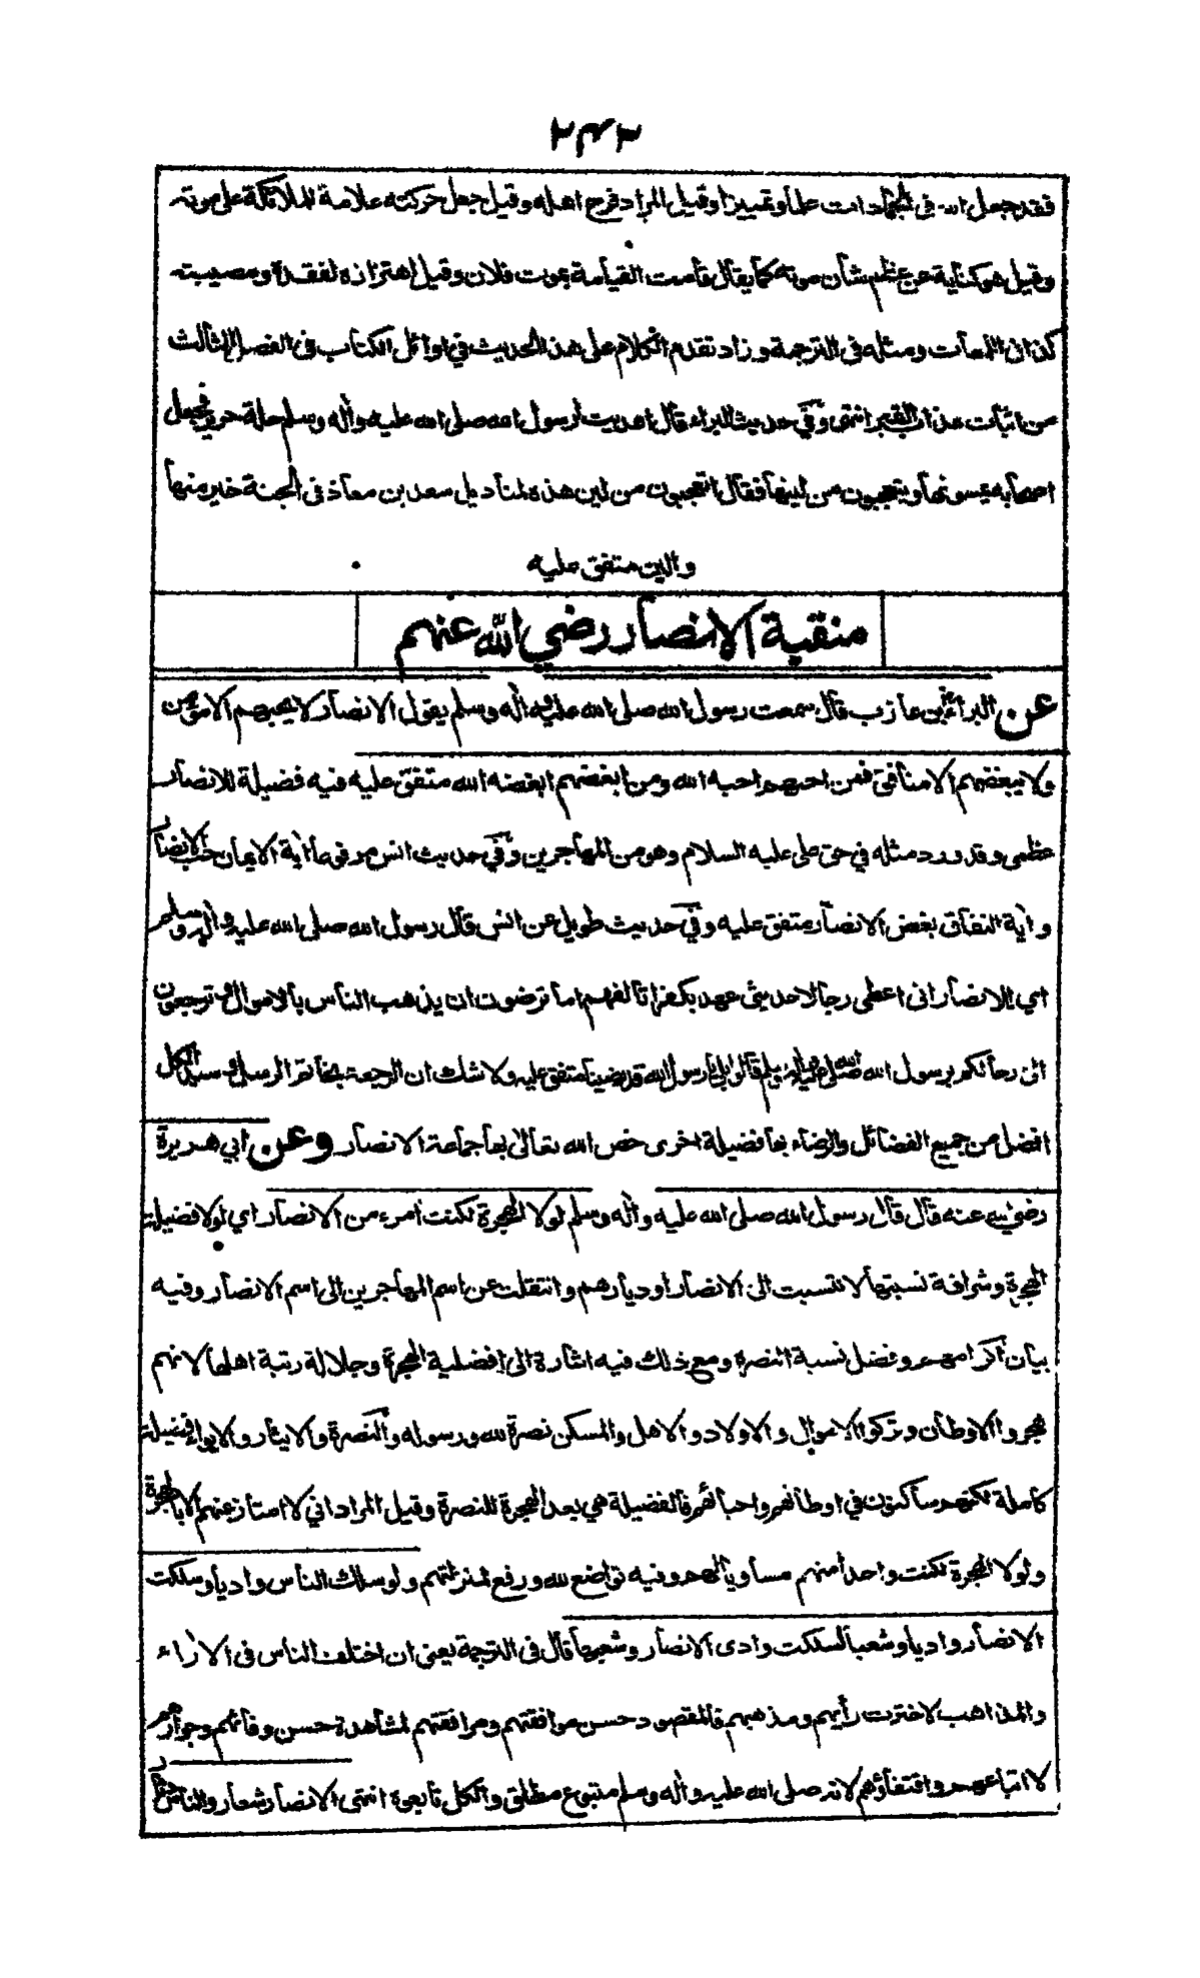 فقد جعل الله في الجمادات علما وتمييزا وقيل المراد فرح اهله وقيل جعل حركته علامة للملائكة على موته
وقيل هو كناية عن عظم شأن موته كما يقال قامت القيامة بموت فلان وقيل اهتزازه لفقده ومصيبته
كذا في اللمعات ومثله في الترجمة وزاد تقدم الكلام على هذا الحديث في اوائل الكتاب في الفصل الثالث
من اثبات عذاب القبر انتهى وفي حديث البراء قال اهديت لرسول الله صلى الله عليه وأله وسلم حلة حرير فجعل
اصحابه يمسونها ويتعجبون من لينها فقال اتعجبون من لين هذه لمناديل سعد بن معاذ في الجنة خير منها
والين متفق عليه
منقبة الانصار رضي الله عنهم
عن البراء بن عازب قال سمعت رسول الله صلى الله عليه وأله وسلم يقول الانصار لا يحبهم الا مؤمن
ولا يبغضهم الا منافق فمن احبهم احبه الله ومن ابغضهم ابغضه الله متفق عليه فيه فضيلة للانصار
عظمى وقد ورد مثله في حق علي عليه السلام وهو من المهاجرين وفي حديث انس مرفوعا أية الايمان حب الانصار
وأية النفاق بغض الانصار متفق عليه وفي حديث طويل عن انس قال رسول الله صلى الله عليه وأله وسلم
اي للانصار اني اعطي رجالا حديثي عهد بكفر اتألفهم اما ترضون ان يذهب الناس بالاموال وترجعون
الى رحالكم برسول الله صلى الله عليه وأله وسلم قالوا بلى يا رسول الله قد رضينا متفق عليه ولا شك ان الرجعة بخاتم الرسل وسيد الكل
افضل من جميع الفضائل والرضاء بها فضيلة اخرى خص الله تعالى بها جماعة الانصار وعن ابي هريرة
رضي الله عنه قال قال رسول الله صلى الله عليه وأله وسلم لولا الهجرة لكنت امرء من الانصار اي لولا فضيلة
الهجرة وشرافة نسبتها لانتسبت الى الانصار او ديارهم وانتقلت عن اسم المهاجرين الى اسم الانصار وفيه
بيان اكرامهم وفضل نسبة النصرة ومع ذلك فيه اشارة الى افضلية الهجرة وجلالة رتبة اهلها لانهم
هجروا الاوطان وتركوا الاموال والاولاد والاهل والمسكن نصرة لله ورسوله والنصرة والايثار والايواء فضيلة
كاملة لكنهم ساكنون في اوطانهم واحبائهم فالفضيلة هي بعد الهجرة للنصرة وقيل المراد اني لا امتاز عنهم الا بالهجرة
ولولا الهجرة لكنت واحدا منهم مساويا لهم وفيه تواضع لله ورفع لمنزلتهم ولو سلك الناس واديا وسلكت
الانصار واديا وشعبا لسلكت وادى الانصار وشعبها قال في الترجمة يعني ان اختلف الناس في الأراء
والمذاهب لاخترت رأيهم ومذهبهم فالمقصود حسن موافقتهم ومرافقتهم لمشاهدة حسن وفائهم وجوارهم
لا اتباعهم واقتفاؤهم لانه صلى الله عليه وأله وسلم متبوع مطلق والكل تابعوه انتهى الانصار شعار والناس دثار